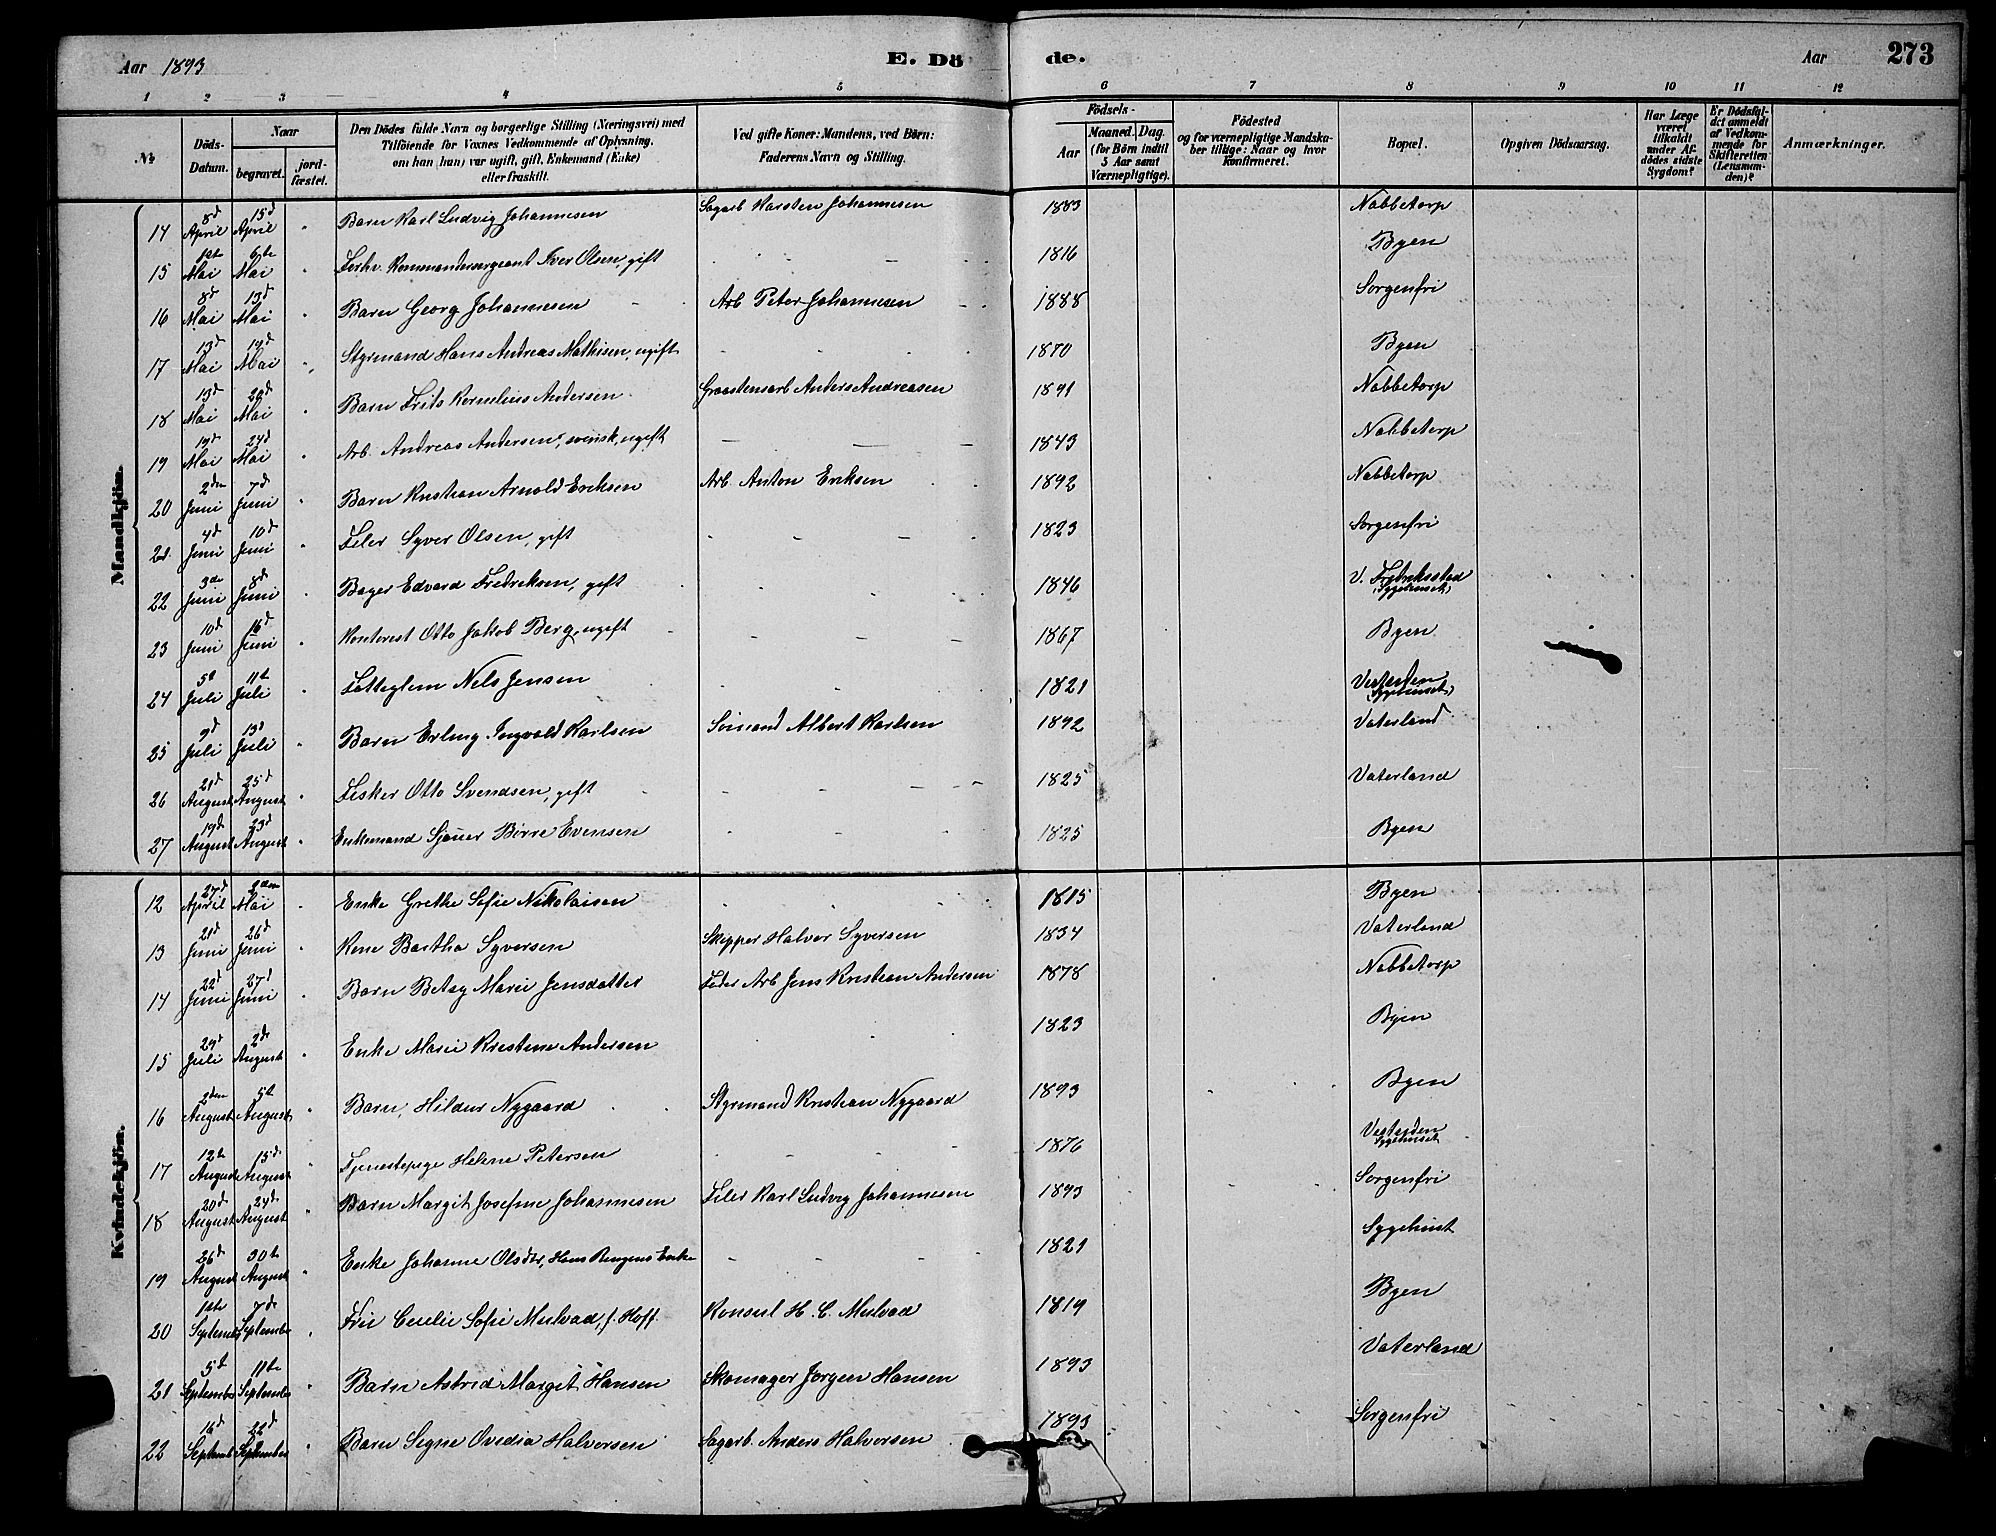 Aar 1893 E. Dö de. Aar 273
1 2 3 4 5 6 7 8 9 10 11 12
No Döds-Datum. Naar begravet. jordfæstet. Den Dödes fulde Navn og borgerlige Stilling (Næringsvei) med Tilföiende for Voxnes Vedkommende af Oplysning, om han (hun) var ugift, gift, Enkemand (Enke) eller fraskilt. Ved gifte Koner: Mandens, ved Börn: Faderens Navn og Stilling. Födsels- Aar Maaned. Dag. (for Börn indtil 5 Aar samt Værnepligtige). Födested og for værnepligtige Mandskaber tillige: Naar og hvor konfirmeret. Bopæl. Opgiven Dödsaarsag. Har Læge været tilkaldt under Afdödes sidste Sygdom? Er Dödsfaldet anmeldt af Vedkommende for Skifteretten (Lensmanden)? Anmærkninger.
Mandkjön.
14 8d April 15d April " Barn Karl Ludvig Johannesen Sagarb Karsten Johannesen 1883 Nabbetorp
15 1ste Mai 6te Mai " Forhv. Kommandersergeant Iver Olsen, gift 1816 Byen
16 8d Mai 13d Mai " Barn Georg Johannesen Arb Peter Johannesen 1888 Sorgenfri
17 13d Mai 19d Mai " Styrmand Hans Andreas Mathisen, ugift 1870 Byen
18 13d Mai 20d Mai " Barn Frits Kornelius Andersen Graastensarb Anders Andreasen 1891 Nabbetorp
19 19d Mai 24d Mai " Arb. Andreas Andersen, svensk, ugift 1843 Nabbetorp
20 2den Juni 7d Juni " Barn Kristian Arnold Eriksen Arb. Anton Eriksen 1892 Nabbetorp
21 4d Juni 10d Juni " Feler Syver Olsen, gift 1823 Sorgenfri
22 3de Juni 8d Juni " Bager Edvard Fredriksen, gift 1846 V. Fredriksstad (Sygehuset)
23 10d Juni 16d Juni Kontorist Otto Jakob Berg, ugift 1867 Byen
24 5t Juli 11t Juli " Fatteglem Nels Jensen 1821 Vestsiden (Sygehuset)
25 9d Juli 13d Juli " Barn Erling Ingvald Karlsen Sömand Albert Karlsen 1892 Vaterland
26 21d August 25d August " Fisker Otto Svendsen, gift 1825 Vaterland
27 19d August 23d August " Enkemand Sjouer Börre Evensen 1825 Byen
Kvindekjön.
12 27d April 2den Mai " Enke Grethe Sofie Nikolaisen 1815 Byen
13 21d Juni 26d Juni " Kone Bertha Syversen Skipper Halvor Syversen 1834 Vaterland
14 22d Juni 27d Juni " Barn Betsy Marie Jensdatter Feder Arb Jens Kristian Andersen 1878 Nabbetorp
15 29d Juli 2de August " Enke Marie Kristine Andersen 1823 Byen
16 2den August 5te August " Barn, Hildur Nygaard Styrmand Kristian Nygaard 1893 Byen
17 12te August 15d August " Tjenestepige Helene Petersen 1876 Vestsiden Sygehuset
18 20d August 24d August " Barn Margit Josefine Johannesen Feler Karl Ludvig Johannesen 1893 Sorgenfri
19 26d August 30te August " Enke Johanne Olsdtr, Hans Ringens Enke 1821 Sygehuset
20 1ste September 7de September " Frue Cecilie Sofie Mulvad, f. Hoff Konsul H. C. Mulvad 1819 Byen
21 5te September 11te September " Barn Astrid Margit Hansen Skomager Jörgen Hansen 1893 Vaterland
22 16d September 22d September " Barn Signe Ovidia Halvorsen Sagarb. Anders Halvorsen 1893 Sorgenfri